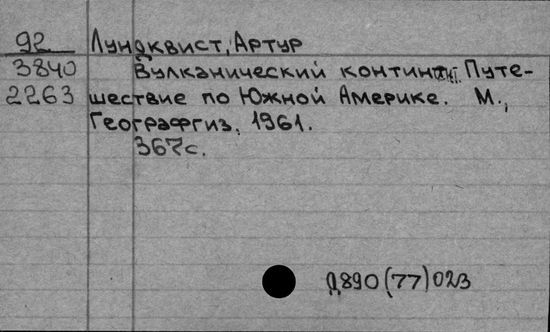 92 Лундквист, Артур
3840 Вулканический континент. Путе-
2263 шествие по Южной Америке. М.,
Географгиз, 1961.
367с.
Д890(77)023